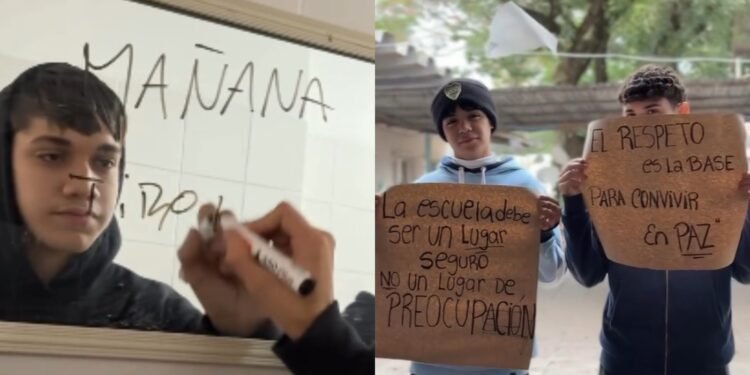 MAÑANA
TiRO
La escuela debe
ser un Lugar
seguro
NO un Lugar de
PREOCUPACIÓN
EL RESPETO
es LA BASE
PARA CONVIVIR
En PAZ"